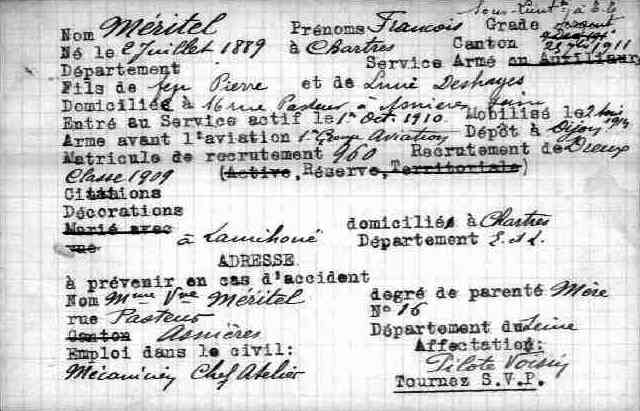 Sous-Lieut^t à T.T.
Nom Méritel Prénoms François Grade Sergent
Né le 2 Juillet 1889 à Chartres Canton 23 1911
Département Service Armé ou Auxiliaire
Fils de feu Pierre et de Lucie Deshayes
Domicilié à 16 rue Pasteur à Asnières Seine
Entré au Service actif le 1er Oct 1910 Mobilisé le 2 1914
Arme avant l'aviation 1er Groupe Aviation Dépôt à Dijon
Matricule de recrutement 960 Recrutement de Dreux
Classe 1909 (Active, Réserve, Territoriale)
Citations
Décorations
Marié avec domicilié à Chartres
rue à Département E. et L.
ADRESSE
à prévenir en cas d'accident
Nom Mme Vve Méritel degré de parenté Mère
rue Pasteur N° 16
Canton Asnières Département du Seine
Emploi dans le civil: Affectation:
Mécanicien Chef Atelier Pilote Voisin
Tournez S.V.P.